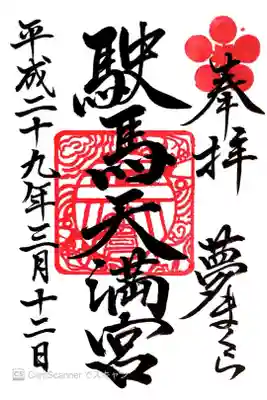 奉拝
夢まくら
駛馬天満宮
平成二十九年三月十二日
CamScanner でスキャン